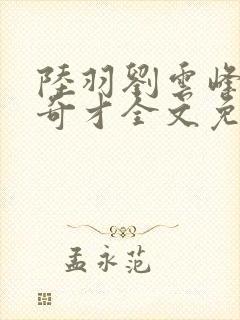 陸羽劉雲峰
奇才全文免
孟永范